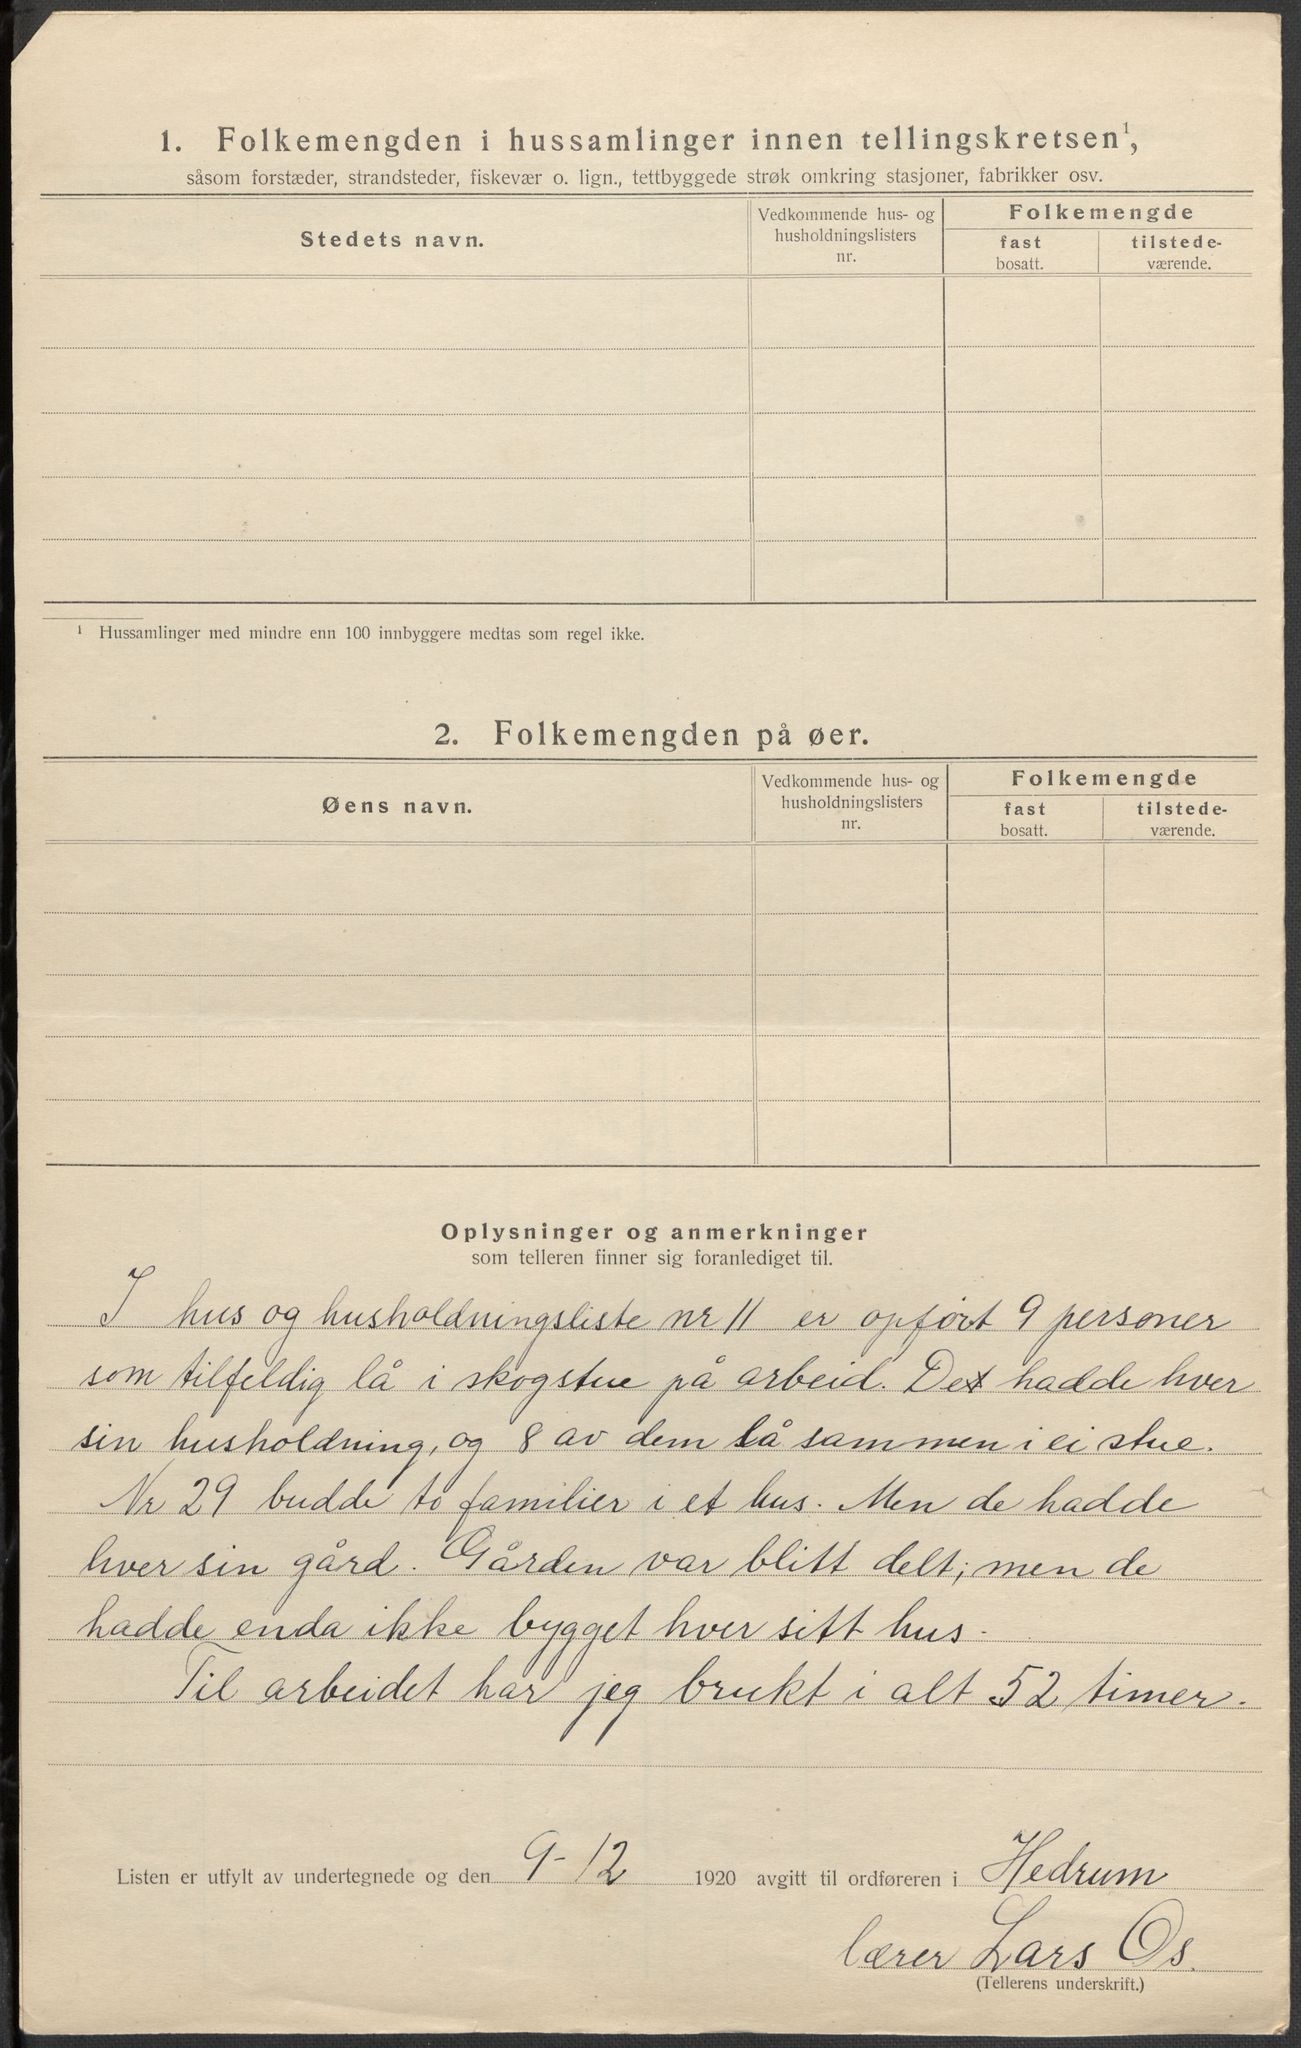 1. Folkemengden i hussamlinger innen tellingskretsen¹,
såsom forstæder, strandsteder, fiskevær o. lign., tettbyggede strøk omkring stasjoner, fabrikker osv.
Stedets navn.
Vedkommende hus- og
husholdningslisters
nr.
Folkemengde
fast
bosatt.
tilstede-
værende.
¹ Hussamlinger med mindre enn 100 innbyggere medtas som regel ikke.
2. Folkemengden på øer.
Øens navn.
Vedkommende hus- og
husholdningslisters
nr.
Folkemengde
fast
bosatt.
tilstede-
værende.
Oplysninger og anmerkninger
som telleren finner sig foranlediget til.
I hus og husholdningsliste nr 11 er opført 9 personer
som tilfeldig lå i skogstue på arbeid. De hadde hver
sin husholdning, og 8 av dem lå sammen i ei stue.
Nr 29 budde to familier i et hus. Men de hadde
hver sin gård. Gården var blitt delt; men de
hadde enda ikke bygget hver sitt hus.
Til arbeidet har jeg brukt i alt 52 timer.
Listen er utfylt av undertegnede og den 9-12 1920 avgitt til ordføreren i Hedrum
lærer Lars Os.
(Tellerens underskrift.)